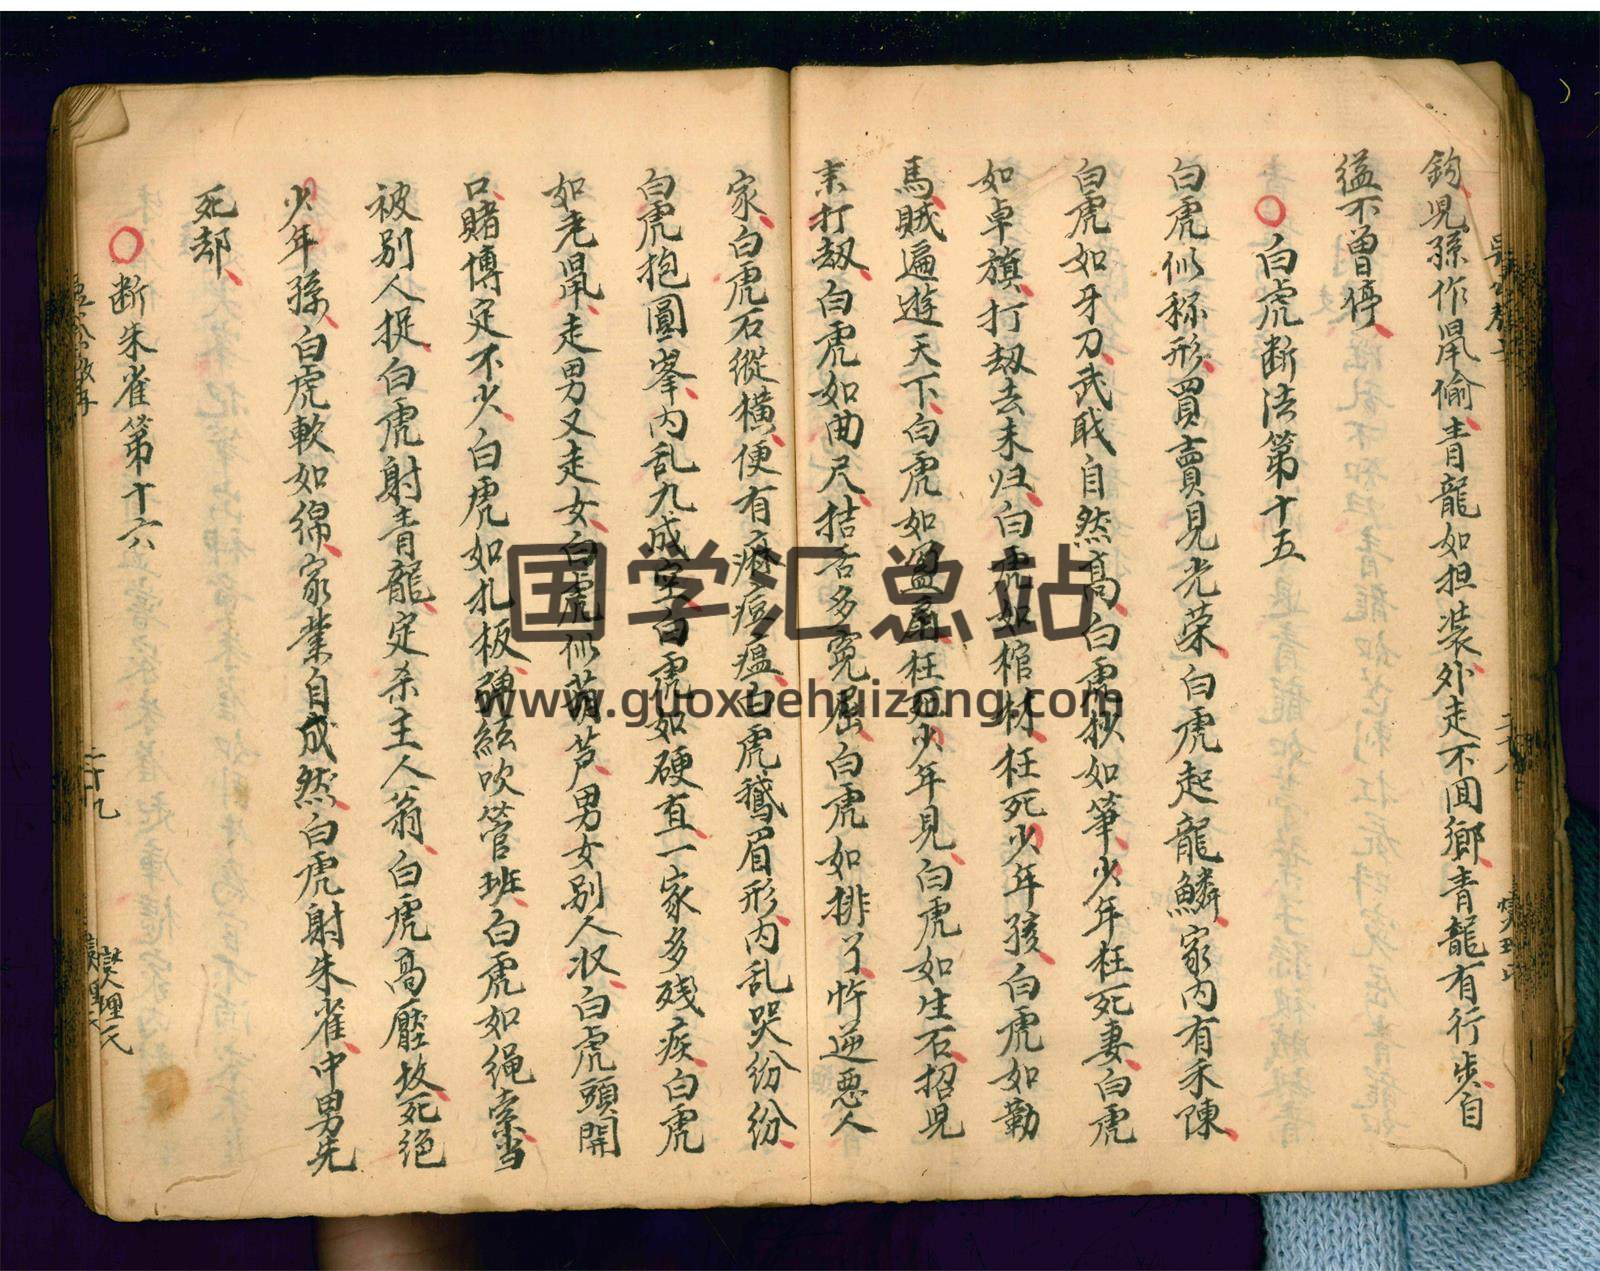 鈎児孫作鼠偷青龍如担装外走不囬鄉青龍有行步自
縊不曾停
○白虎断法第十五
白虎似称形買賣見光荣白虎起龍鱗家内有禾陳
白虎如牙刀武戝自然高白虎拟如筆少年枉死妻白虎
如卓旗打刼去未归白虎如棺材枉死少年孩白虎如勒
馬賊遍遊天下白虎如覄枉死少年見白虎如生石招児
来打刼白虎如曲尺拮吿多寃屈白虎如排丫忤逆悪人
家白虎石縱横便有痳痘瘟白虎鵝眉形内乱哭纷纷
白虎抱圓峯内乱九成空白虎如硬直一家多残疾白虎
如老鼠走男又走女白虎似葫芦男女別人収白虎頭開
口賭博定不少白虎如扎板弹絃吹管班白虎如绳索当
被別人捉白虎射青龍定杀主人翁白虎高壓坟死絕
少年孫白虎軟如綿家業自成然白虎射朱雀中男先
死却
○断朱雀第十六
二十九
國学汇总站
www.guoxuehuizong.com